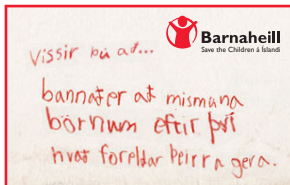 Barnaheill
Save the Children á Íslandi
Vissir þú að...
bannað er að mismuna
börnum eftir því
hvað foreldrar þeirra gera.